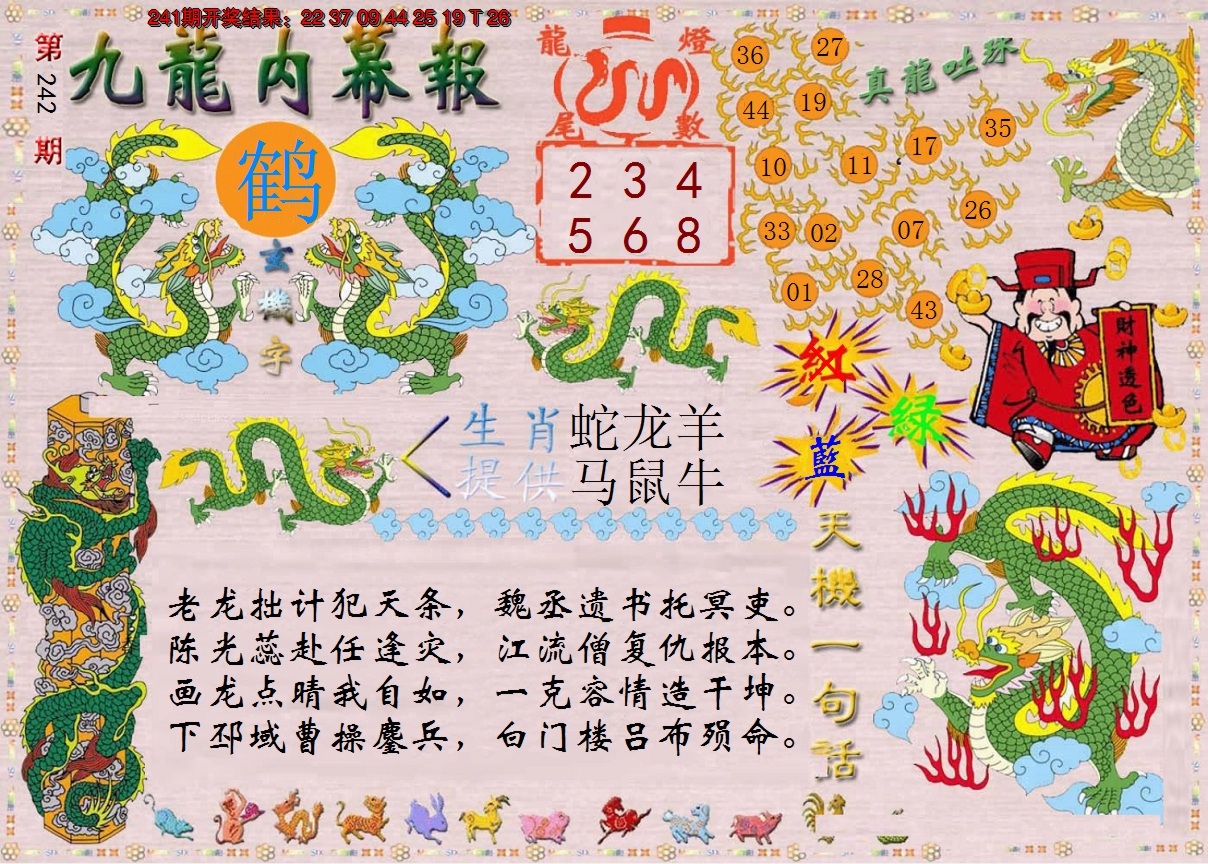 241期开奖结果：22 37 09 44 25 19 T 26
第242期
九龍内幕報
鹤
玄機字
龍燈
尾數
2 3 4
5 6 8
真龍吐珠
36 27
44 19
35
17
10 11
26
33 02 07
28
01
43
財神透色
紅
綠
藍
生肖 蛇龙羊
提供 马鼠牛
天機一句話
老龙拙计犯天条，魏丞遗书托冥吏。
陈光蕊赴任逢灾，江流僧复仇报本。
画龙点睛我自如，一克容情造干坤。
下邳域曹操鏖兵，白门楼吕布殒命。